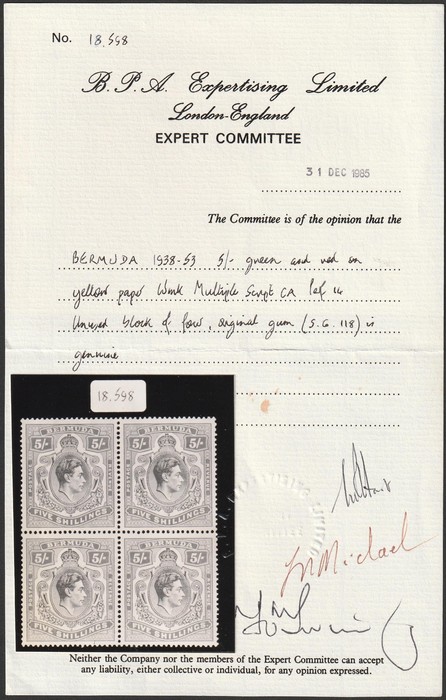 No. 18,598
B.P.A. Expertising Limited
London-England
EXPERT COMMITTEE
31 DEC 1985
The Committee is of the opinion that the
BERMUDA 1938-53 5/- green and red on
yellow paper Wmk Multiple Script CA Perf 14
Unused block of four, original gum (S.G. 118) is
genuine
18,598
BERMUDA BERMUDA
5/- 5/- 5/- 5/-
FIVE SHILLINGS FIVE SHILLINGS
BERMUDA BERMUDA
5/- 5/- 5/- 5/-
FIVE SHILLINGS FIVE SHILLINGS
Neither the Company nor the members of the Expert Committee can accept
any liability, either collective or individual, for any opinion expressed.